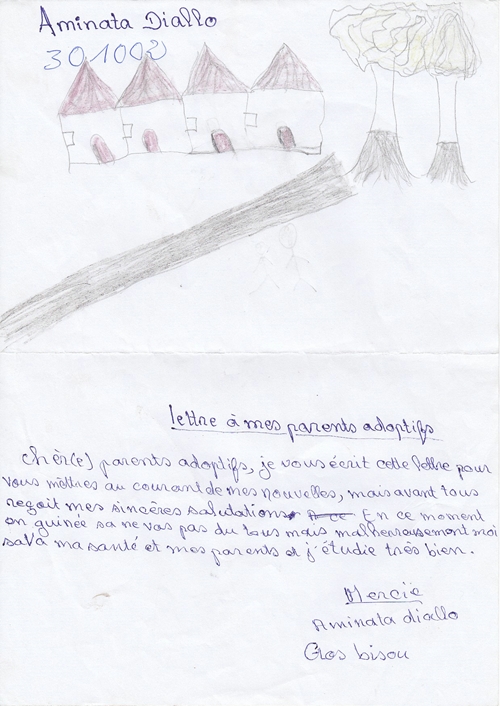 Aminata Diallo
301002
lettre à mes parents adoptifs
chèr(e) parents adoptifs, je vous écrit cette lettre pour
vous mettres au courant de mes nouvelles, mais avant tous
reçoit mes sincères salutations. En ce moment
en guinée sa ne vas pas du tous mais malheureusement moi
sava ma santé et mes parents et j'étudie très bien.
Merciè
Aminata diallo
Gros bisou